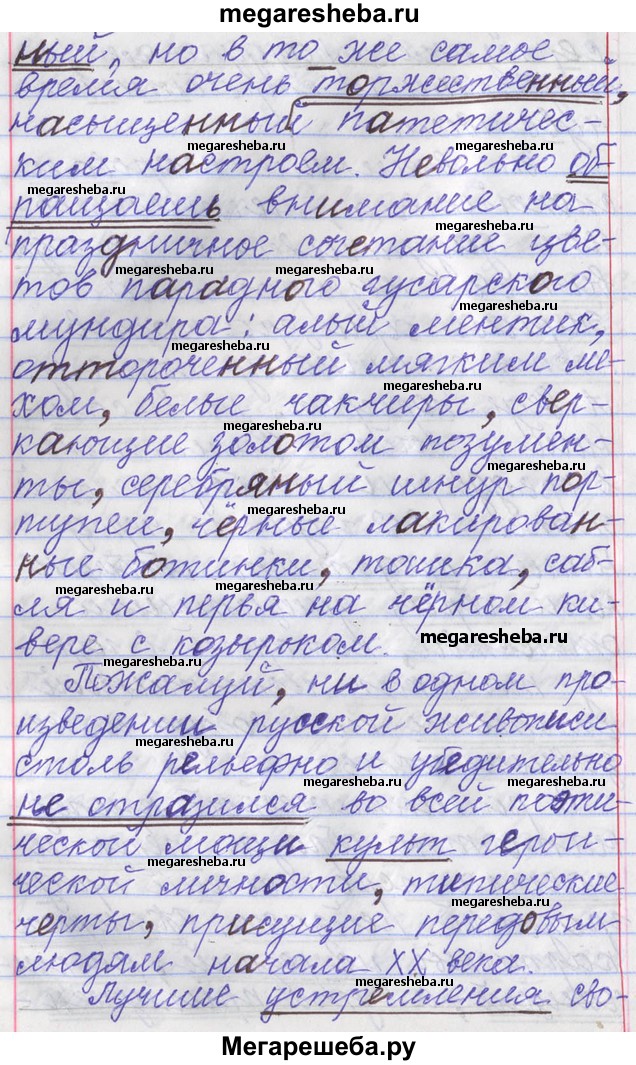 megaresheba.ru
ный, но в то же самое
время очень торжественный,
насыщенный патетичес-
ким настроем. Невольно об-
ращаешь внимание на
праздничное сочетание цве-
тов парадного гусарского
мундира: алый ментик,
отттороченный мягким ме-
хом, белые чакчиры, свер-
кающие золотом позумен-
ты, серебряный шнур пор-
тупеи, чёрные лакирован-
ные ботинки, ташка, саб-
ля и перья на чёрном ки-
вере с козырьком.
Пожалуй, ни в одном про-
изведении русской живописи
столь рельефно и убедительно
не отразился во всей поэти-
ческой мощи культ герои-
ческой личности, типические
черты, присущие передовым
людям начала XX века.
Лучшие устремления сво-
Мегарешеба.ру
megaresheba.ru
megaresheba.ru
megaresheba.ru
megaresheba.ru
megaresheba.ru
megaresheba.ru
megaresheba.ru
megaresheba.ru
megaresheba.ru
megaresheba.ru
megaresheba.ru
megaresheba.ru
megaresheba.ru
megaresheba.ru
megaresheba.ru
megaresheba.ru
megaresheba.ru
megaresheba.ru
megaresheba.ru
megaresheba.ru
megaresheba.ru
megaresheba.ru